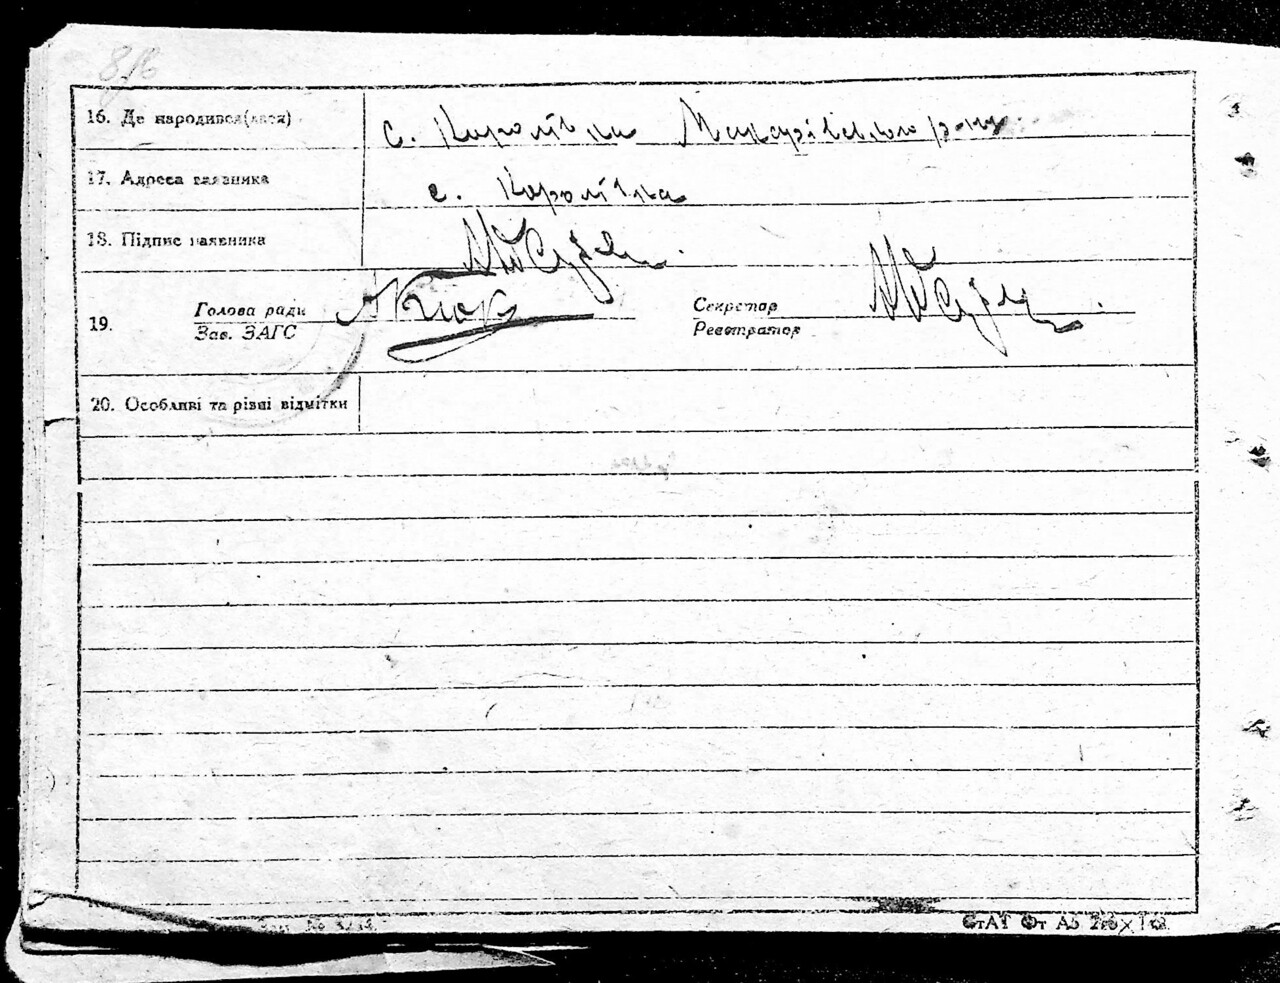 16. Де народився(лася) с. Королівка Макарівського р-ну
17. Адреса заявника с. Королівка
18. Підпис заявника
19. Голова ради Секретар
Зав. ЗАГС Реєстратор
20. Особливі та різні відмітки
СтАТ От А5